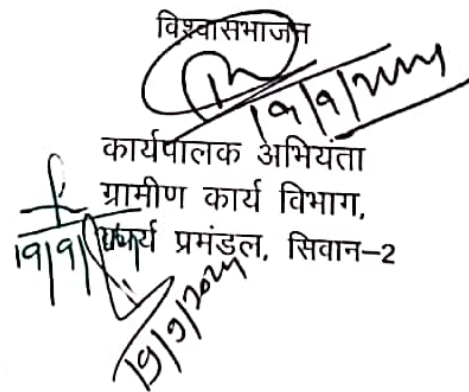 विश्वासभाजन
19/9/2024
कार्यपालक अभियंता
ग्रामीण कार्य विभाग,
कार्य प्रमंडल, सिवान-2
19/9/2024
19/9/2024